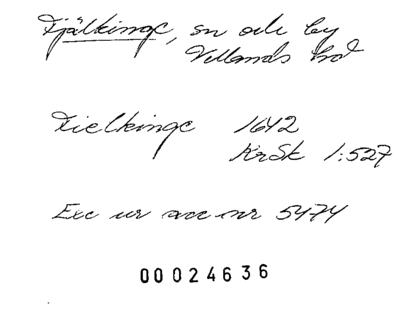 Fjälkinge, sn och by
Villands hd
Fielkinge 1642
KrSk 1:527
Exc ur acc nr 5474
00024636